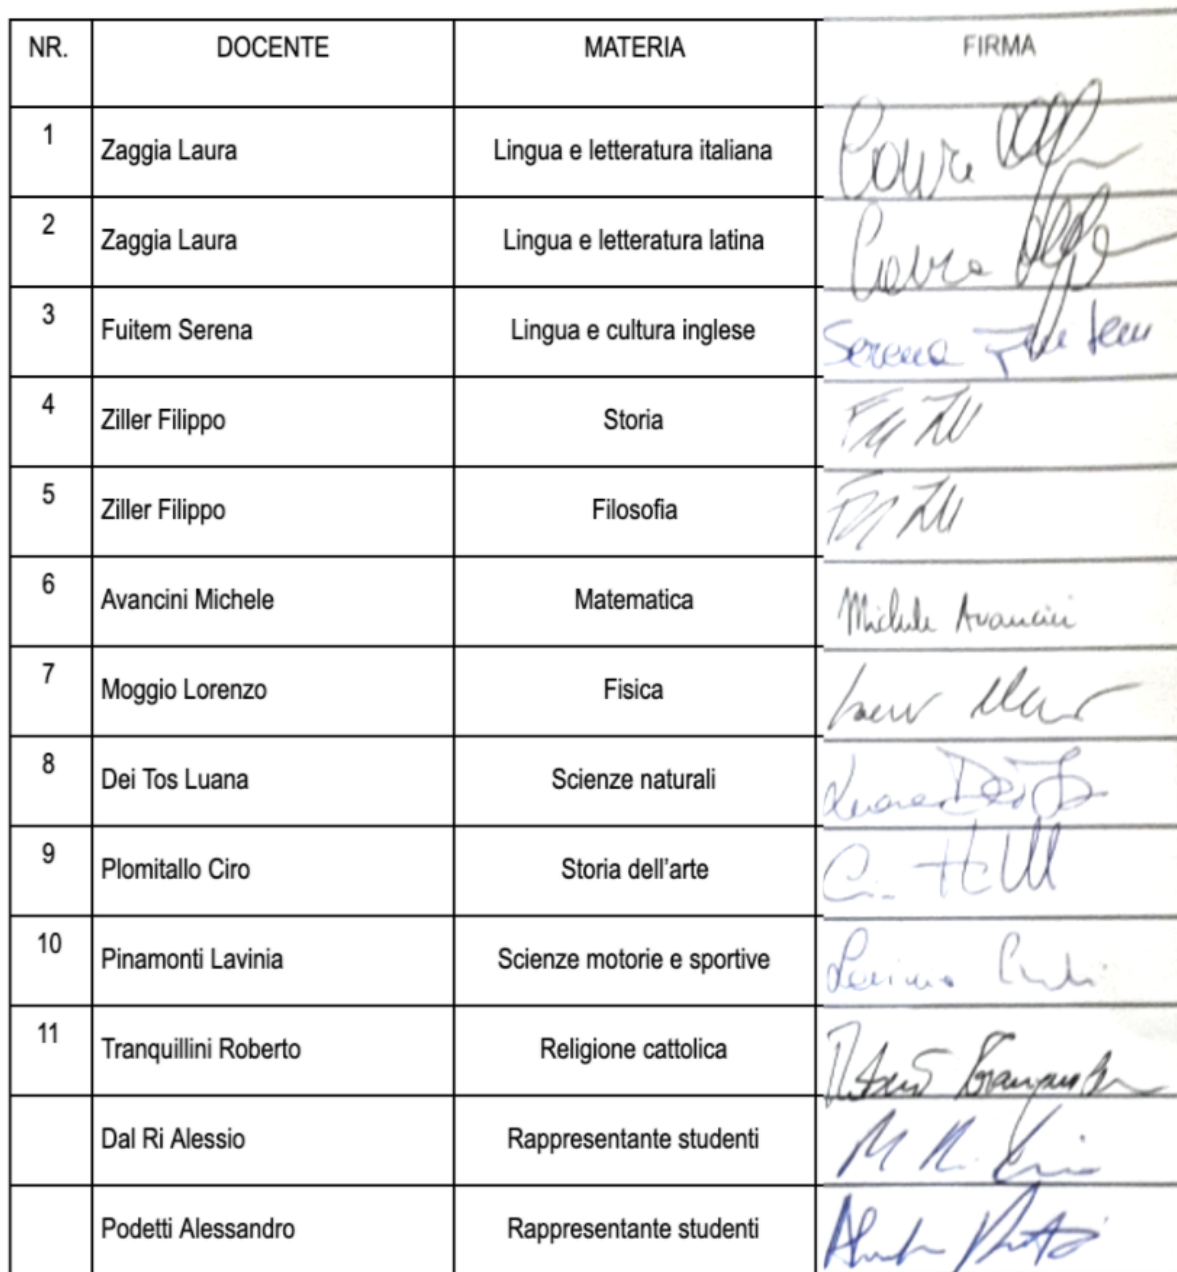 NR. DOCENTE MATERIA FIRMA
1 Zaggia Laura Lingua e letteratura italiana Laura
2 Zaggia Laura Lingua e letteratura latina Laura
3 Fuitem Serena Lingua e cultura inglese Serena Fuitem
4 Ziller Filippo Storia
5 Ziller Filippo Filosofia
6 Avancini Michele Matematica Michele Avancini
7 Moggio Lorenzo Fisica
8 Dei Tos Luana Scienze naturali Luana Dei Tos
9 Plomitallo Ciro Storia dell'arte
10 Pinamonti Lavinia Scienze motorie e sportive
11 Tranquillini Roberto Religione cattolica
Dal Ri Alessio Rappresentante studenti
Podetti Alessandro Rappresentante studenti